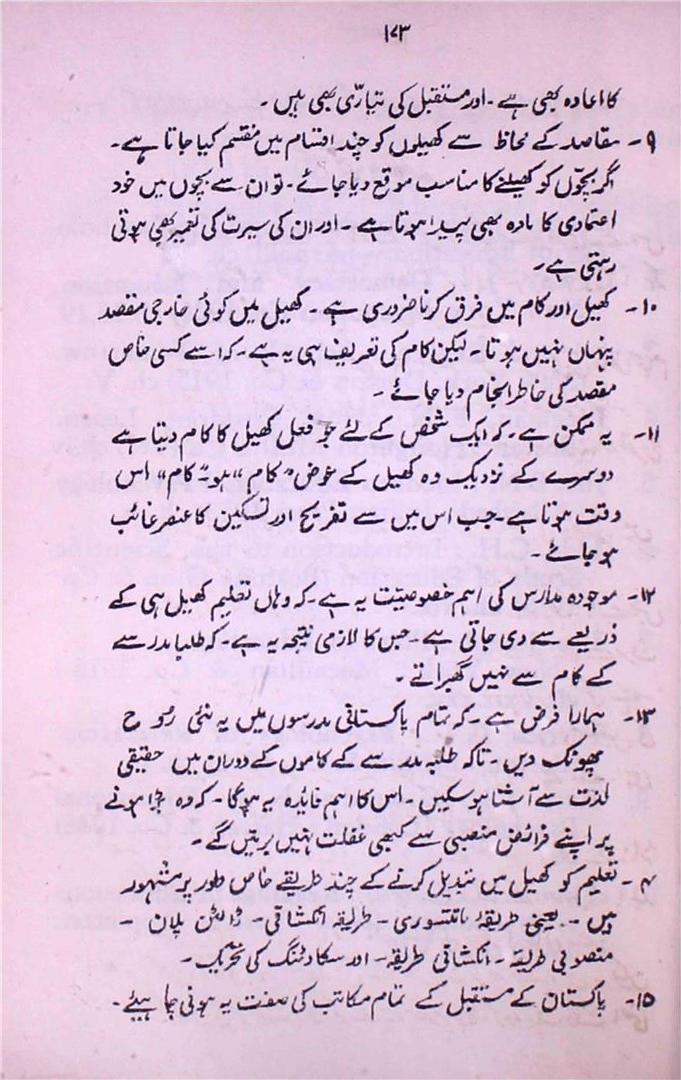 ۱۷۳
کا اعادہ بھی ہے ۔ اور مستقبل کی تیاری بھی ہیں ۔
۹۔ مقاصد کے لحاظ سے کھیلوں کو چند اقسام میں مُقسم کیا جاتا ہے ۔
اگر بچّوں کو کھیلنے کا مناسب موقع دیا جائے ۔ تو ان سے بچوں میں خود
اعتمادی کا مادہ بھی پیدا ہوتا ہے ۔ اور ان کی سیرت کی تعمیر بھی ہوتی
رہتی ہے ،
۱۰۔ کھیل اور کام میں فرق کرنا ضروری ہے ۔ کھیل میں کوئی خارجی مقصد
پنہاں نہیں ہوتا ۔ لیکن کام کی تعریف ہی یہ ہے ۔ کہ اسے کسی خاص
مقصد کی خاطر انجام دیا جائے ۔
۱۱۔ یہ ممکن ہے ۔ کہ ایک شخص کے لئے جو فعل کھیل کا کام دیتا ہے
دوسرے کے نزدیک وہ کھیل کے عوض "کام" ہو ۔ "کام" اس
وقت ہوتا ہے ۔ جب اس میں سے تفریح اور تسکین کا عنصر غائب
ہو جائے ۔
۱۲۔ موجودہ مدارس کی اہم خصوصیت یہ ہے ۔ کہ وہاں تعلیم کھیل ہی کے
ذریعے سے دی جاتی ہے ۔ جس کا لازمی نتیجہ یہ ہے ۔ کہ طلبا مدرسے
کے کام سے نہیں گھبراتے ۔
۱۳۔ ہمارا فرض ہے ۔ کہ تمام پاکستانی مدرسوں میں یہ نئی رُوح
پھونک دیں ۔ تاکہ طلبہ مدرسے کے کاموں کے دوران میں حقیقی
لذت سے آشنا ہو سکیں ۔ اس کا اہم فایدہ یہ ہوگا ۔ کہ وہ بڑا ہونے
پر اپنے فرائض منصبی سے کبھی غفلت نہیں برتیں گے ۔
۱۴۔ تعلیم کو کھیل میں تبدیل کرنے کے چند طریقے خاص طور پر مشہور
ہیں ۔ یعنی طریقۂ مانٹسوری ۔ طریقہ انکشافی ۔ ڈالٹن پلان ۔
منصوبی طریقہ ۔ انکشافی طریقہ ۔ اور سکاؤٹنگ کی تحریک ۔
۱۵۔ پاکستان کے مستقبل کے تمام مکاتب کی صفت یہ ہونی چاہیئے ۔